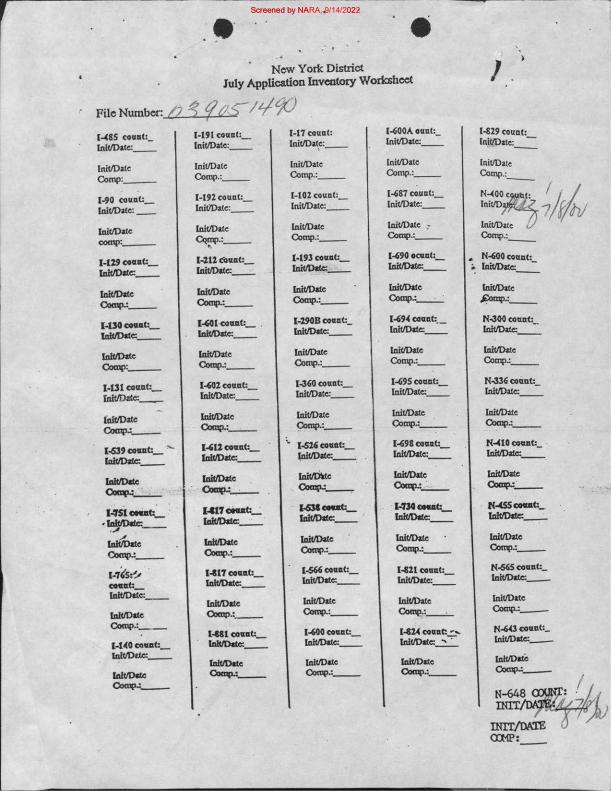 Screened by NARA, 9/14/2022
New York District
July Application Inventory Worksheet
File Number: 039051490
I-485 count:_
Init/Date:____
Init/Date
Comp:____
I-90 count:_
Init/Date:____
Init/Date
comp:____
I-129 count:__
Init/Date:____
Init/Date
Comp.:____
I-130 count:__
Init/Date:____
Init/Date
Comp:____
I-131 count:__
Init/Date:____
Init/Date
Comp.:____
I-539 count:_
Init/Date:____
Init/Date
Comp.:____
I-751 count:_
Init/Date:____
Init/Date
Comp.:____
I-765:
count:__
Init/Date:____
Init/Date
Comp.:____
I-140 count:__
Init/Date:____
Init/Date
Comp.:____
I-191 count:__
Init/Date:____
Init/Date
Comp.:____
I-192 count:__
Init/Date:____
Init/Date
Comp.:____
I-212 count:__
Init/Date:____
Init/Date
Comp.:____
I-601 count:__
Init/Date:____
Init/Date
Comp.:____
I-602 count:__
Init/Date:____
Init/Date
Comp.:____
I-612 count:__
Init/Date:____
Init/Date
Comp.:____
I-817 count:__
Init/Date:____
Init/Date
Comp.:____
I-817 count:__
Init/Date:____
Init/Date
Comp.:____
I-881 count:__
Init/Date:____
Init/Date
Comp.:____
I-17 count:
Init/Date:____
Init/Date
Comp.:____
I-102 count:__
Init/Date:____
Init/Date
Comp.:____
I-193 count:__
Init/Date:____
Init/Date
Comp.:____
I-290B count:_
Init/Date:____
Init/Date
Comp.:____
I-360 count:__
Init/Date:____
Init/Date
Comp.:____
I-526 count:__
Init/Date:____
Init/Date
Comp.:____
I-538 count:__
Init/Date:____
Init/Date
Comp.:____
I-566 count:__
Init/Date:____
Init/Date
Comp.:____
I-600 count:__
Init/Date:____
Init/Date
Comp.:____
I-600A ount:__
Init/Date:____
Init/Date
Comp.:____
I-687 count:__
Init/Date:____
Init/Date
Comp.:____
I-690 ocunt:__
Init/Date:____
Init/Date
Comp.:____
I-694 count:__
Init/Date:____
Init/Date
Comp.:____
I-695 count:__
Init/Date:____
Init/Date
Comp.:____
I-698 count:__
Init/Date:____
Init/Date
Comp.:____
I-730 count:__
Init/Date:____
Init/Date
Comp.:____
I-821 count:__
Init/Date:____
Init/Date
Comp.:____
I-824 count:__
Init/Date:
Init/Date
Comp.:____
I-829 count:__
Init/Date:____
Init/Date
Comp.:____
N-400 count: 1
Init/Date: 7/8/02
Init/Date
Comp.:____
N-600 count:_
Init/Date:____
Init/Date
Comp.:____
N-300 count:_
Init/Date:____
Init/Date
Comp.:____
N-336 count:_
Init/Date:____
Init/Date
Comp.:____
N-410 count:_
Init/Date:____
Init/Date
Comp.:____
N-455 count:_
Init/Date:____
Init/Date
Comp.:____
N-565 count:_
Init/Date:____
Init/Date
Comp.:____
N-643 count:_
Init/Date:____
Init/Date
Comp.:____
N-648 COUNT: 1
INIT/DATE: 7/8/02
INIT/DATE
COMP:____